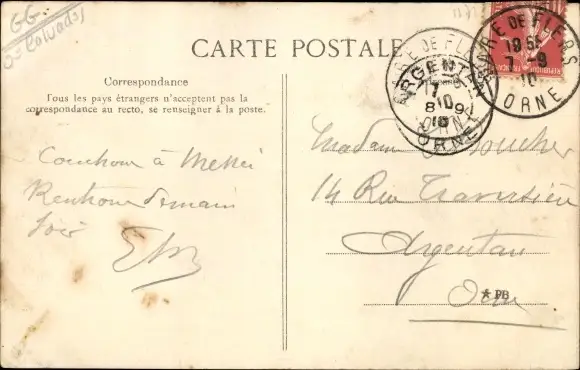 GG
Calvados
CARTE POSTALE
Correspondance
Tous les pays étrangers n'acceptent pas la
correspondance au recto, se renseigner à la poste.
Couchons à Messei
Rentrons demain
soir
GARE DE FLERS
19 55
7 - 9
10
ORNE
ARGENTAN
7 10
8 - 9
10
ORNE
Madame Boucher
14 Rue Traversière
Argentan
Orne
* PB